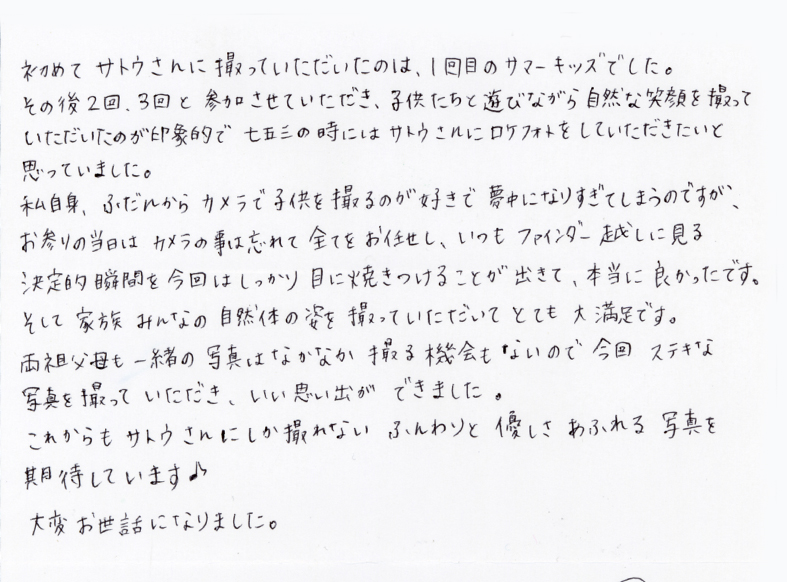 初めて サトウさんに 撮っていただいたのは、1回目のサマーキッズでした。
その後2回、3回と 参加させていただき、子供たちと遊びながら自然な笑顔を撮って
いただいたのが印象的で 七五三の時には サトウさんにロケフォトをしていただきたいと
思っていました。
私自身、ふだんから カメラで子供を撮るのが好きで 夢中になりすぎてしまうのですが、
お参りの当日は カメラの事は忘れて 全てをお任せし、いつも ファインダー越しに見る
決定的瞬間を今回はしっかり 目に焼きつけることが出きて、本当に良かったです。
そして 家族 みんなの 自然体の姿を 撮っていただいて とても 大満足です。
両祖父母も一緒の 写真はなかなか 撮る機会もないので 今回 ステキな
写真を撮って いただき、いい思い出が できました。
これからも サトウさんにしか撮れない ふんわりと 優しさ あふれる 写真を
期待しています♪
大変お世話になりました。